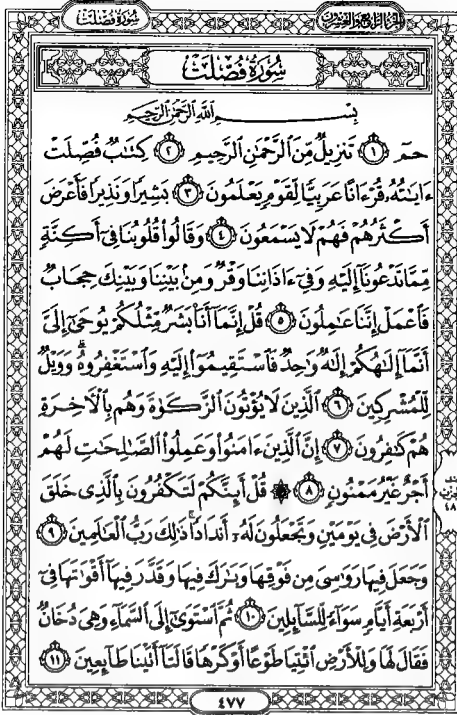 سُورَةُ فُصِّلَتْ
الجزء الرابع والعشرون
سُورَةُ فُصِّلَتْ
بِسْمِ اللَّهِ الرَّحْمَٰنِ الرَّحِيمِ
حمٓ ١ تَنزِيلٌ مِّنَ الرَّحْمَٰنِ الرَّحِيمِ ٢ كِتَٰبٌ فُصِّلَتْ
ءَايَٰتُهُۥ قُرْءَانًا عَرَبِيًّا لِّقَوْمٍ يَعْلَمُونَ ٣ بَشِيرًا وَنَذِيرًا فَأَعْرَضَ
أَكْثَرُهُمْ فَهُمْ لَا يَسْمَعُونَ ٤ وَقَالُوا۟ قُلُوبُنَا فِىٓ أَكِنَّةٍ
مِّمَّا تَدْعُونَآ إِلَيْهِ وَفِىٓ ءَاذَانِنَا وَقْرٌ وَمِنۢ بَيْنِنَا وَبَيْنِكَ حِجَابٌ
فَٱعْمَلْ إِنَّنَا عَٰمِلُونَ ٥ قُلْ إِنَّمَآ أَنَا۠ بَشَرٌ مِّثْلُكُمْ يُوحَىٰٓ إِلَىَّ
أَنَّمَآ إِلَٰهُكُمْ إِلَٰهٌ وَٰحِدٌ فَٱسْتَقِيمُوٓا۟ إِلَيْهِ وَٱسْتَغْفِرُوهُ ۗ وَوَيْلٌ
لِّلْمُشْرِكِينَ ٦ ٱلَّذِينَ لَا يُؤْتُونَ ٱلزَّكَوٰةَ وَهُم بِٱلْءَاخِرَةِ
هُمْ كَٰفِرُونَ ٧ إِنَّ ٱلَّذِينَ ءَامَنُوا۟ وَعَمِلُوا۟ ٱلصَّٰلِحَٰتِ لَهُمْ
أَجْرٌ غَيْرُ مَمْنُونٍ ٨ ۞ قُلْ أَئِنَّكُمْ لَتَكْفُرُونَ بِٱلَّذِى خَلَقَ
ٱلْأَرْضَ فِى يَوْمَيْنِ وَتَجْعَلُونَ لَهُۥٓ أَندَادًا ۚ ذَٰلِكَ رَبُّ ٱلْعَٰلَمِينَ ٩
وَجَعَلَ فِيهَا رَوَٰسِىَ مِن فَوْقِهَا وَبَٰرَكَ فِيهَا وَقَدَّرَ فِيهَآ أَقْوَٰتَهَا فِىٓ
أَرْبَعَةِ أَيَّامٍ سَوَآءً لِّلسَّآئِلِينَ ١٠ ثُمَّ ٱسْتَوَىٰٓ إِلَى ٱلسَّمَآءِ وَهِىَ دُخَانٌ
فَقَالَ لَهَا وَلِلْأَرْضِ ٱئْتِيَا طَوْعًا أَوْ كَرْهًا قَالَتَآ أَتَيْنَا طَآئِعِينَ ١١
٤٧٧